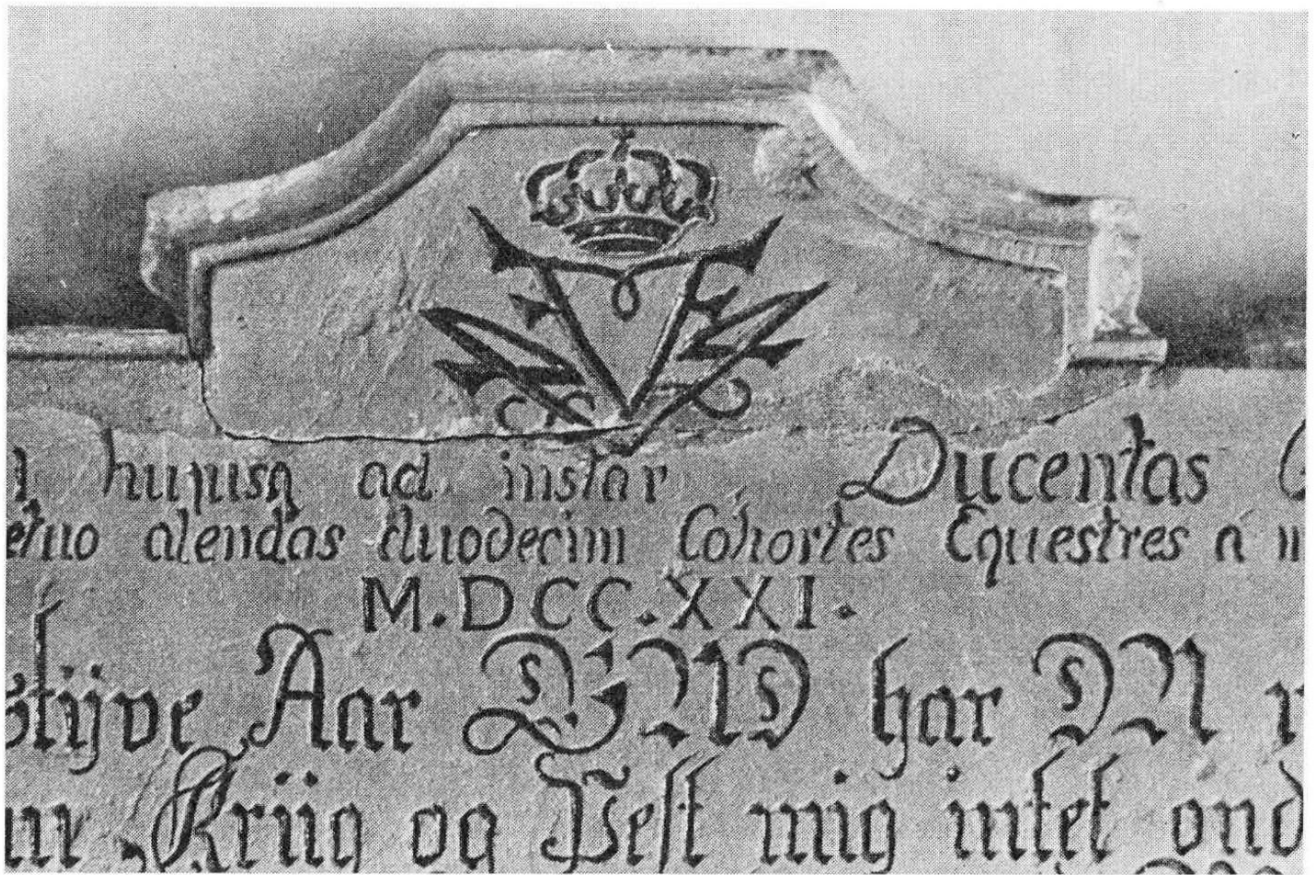 hujusq ad instar Ducentas
alendas duodecim Cohortes Equestres a
M.DCC.XXI.
stijve Aar GUD har M
Kriig og Pest mig intet ond